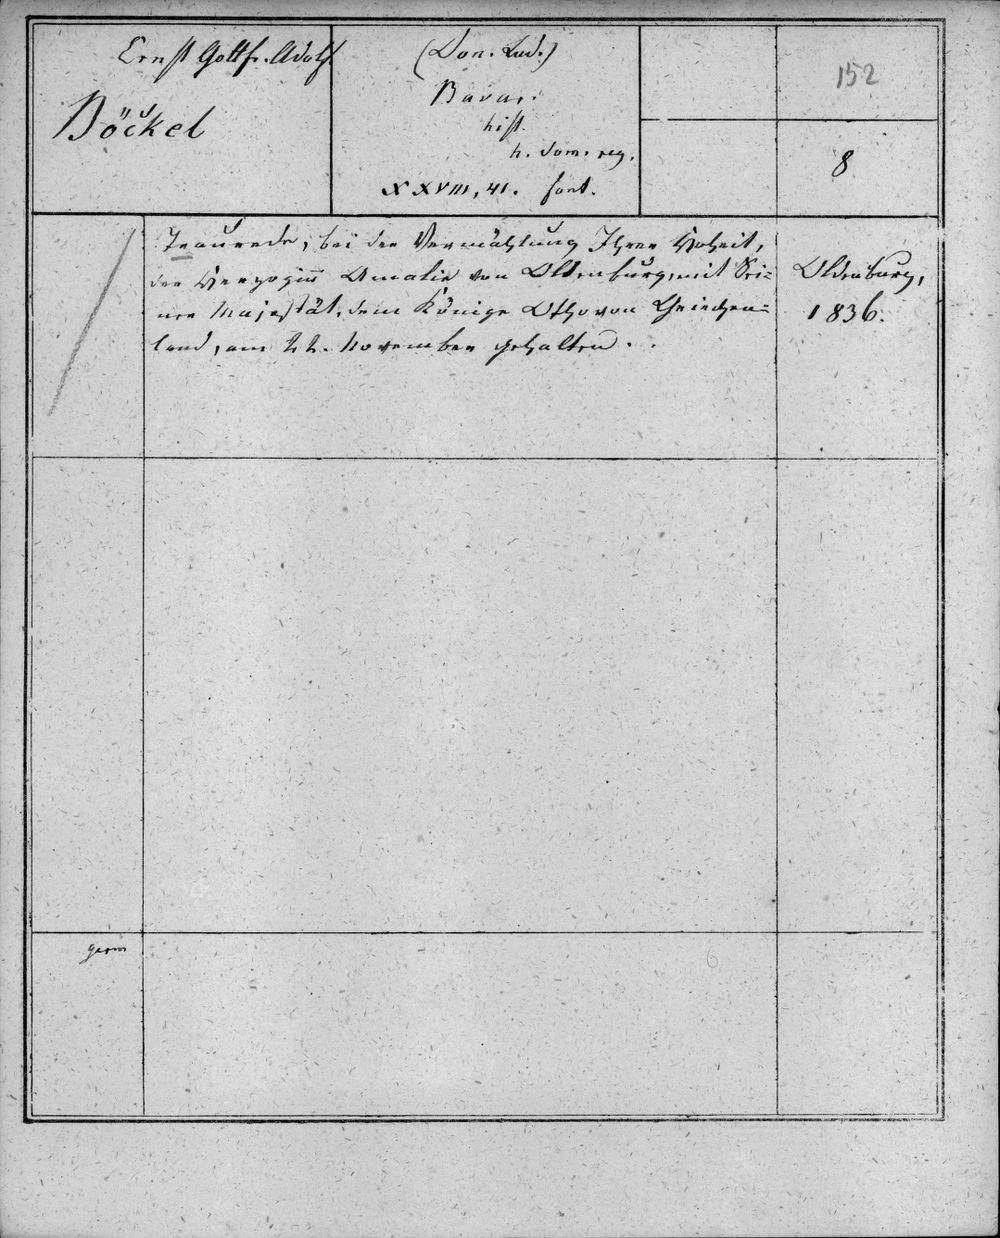 Ernst Gottfr. Adolf
Böckel
(Don. Lud.)
Bavar.
hist.
h. dom. reg.
XXVIII, 41. font.
152
8
Traurede, bei der Vermählung Ihrer Hoheit,
der Herzoginn Amalie von Oldenburg, mit Sei=
ner Majestät, dem Könige Otho von Griechen=
land, am 22. November gehalten.
Oldenburg,
1836.
germ
6